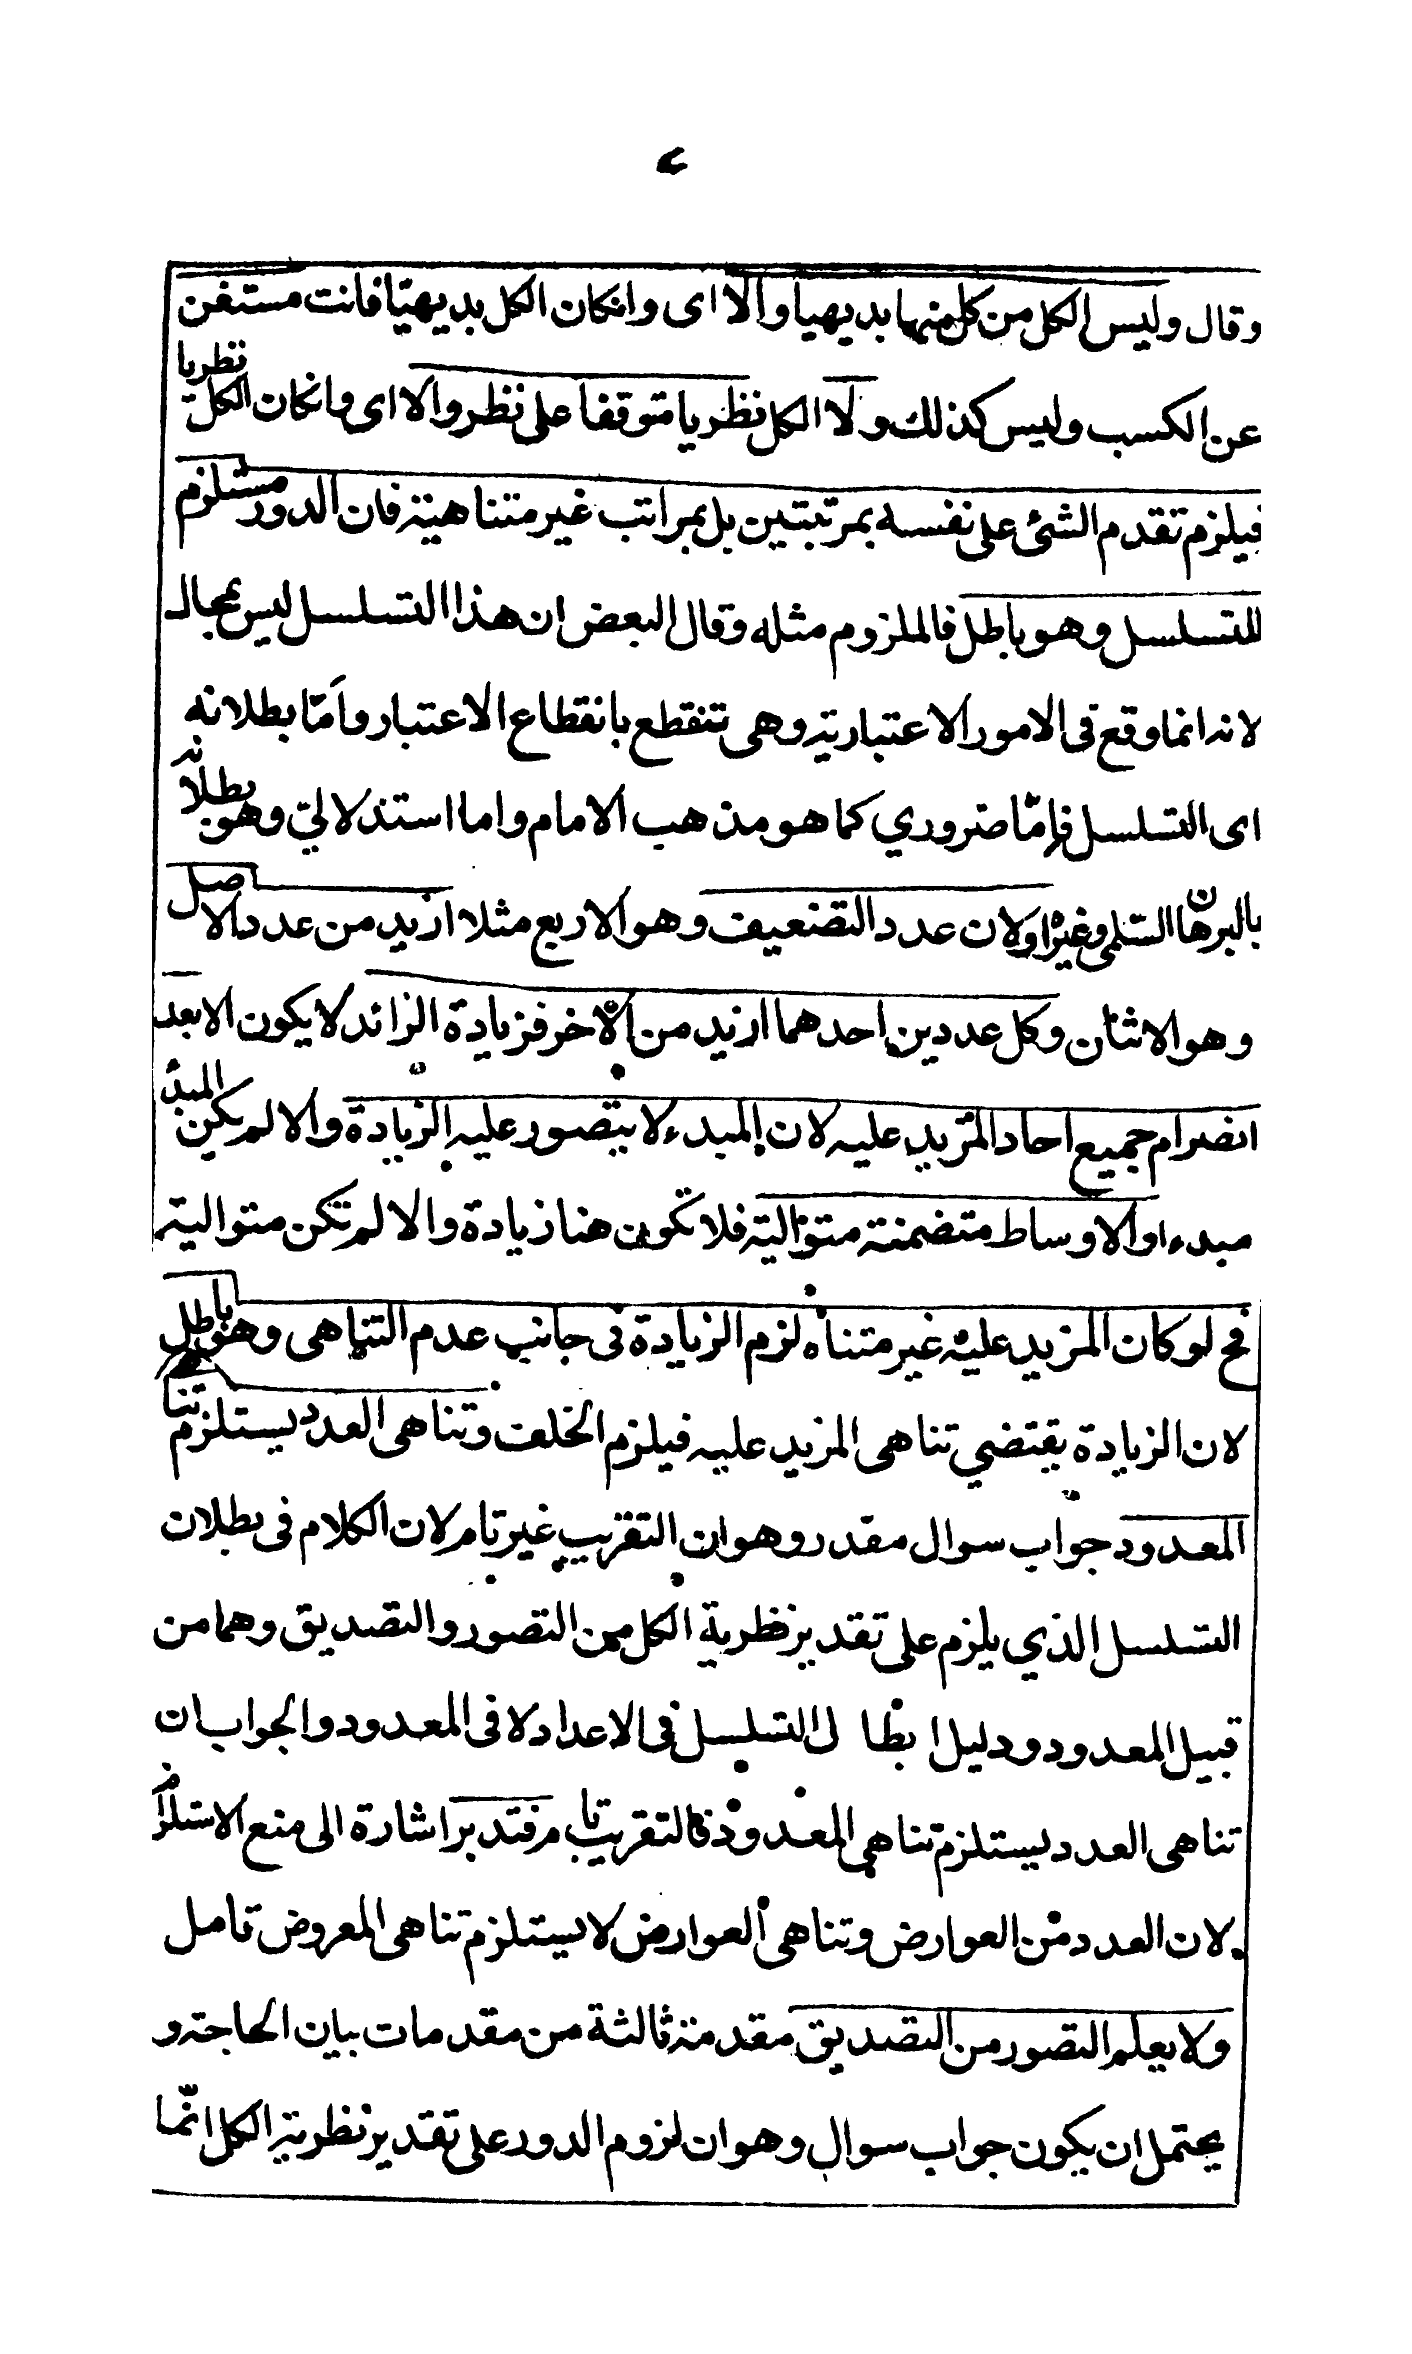 وقال وليس الكل من كل منهما بديهيا والا اى وانكان الكل بديهيّا فانت مستغن
عن الكسب وليس كذلك ولا الكل نظريا متوقفا على نظر والا اى وانكان الكل نظريا
فيلزم تقدم الشئ على نفسه بمرتبتين بل بمراتب غير متناهية فان الدور مستلزم
للتسلسل وهو باطل فالملزوم مثله وقال البعض ان هذا التسلسل ليس بمحال
لانه انما وقع فى الامور الاعتبارية وهى تنقطع بانقطاع الاعتبار واَمّا بطلانه
اى التسلسل فإمّا ضروري كما هو مذهب الامام واما استدلالي وهو بطلانه
بالبرهان السّلمى وغيره او لان عدد التضعيف وهو الاربع مثلا ازيد من عدد الاصل
وهو الاثنان وكل عددين احدهما ازيد من الاخر فزيادة الزائد لا يكون الا بعد
انصرام جميع احاد المزيد عليه لان المبدء لا يتصور عليه الزيادة والا لم يكن المبدء
مبدء او الاوساط متضمنة متوالية فلا تكون هنا زيادة والا لم تكن متوالية
فح لو كان المزيد عليه غير متناه لزم الزيادة فى جانب عدم التناهى وهو باطل
لان الزيادة يقتضي تناهى المزيد عليه فيلزم الخلف وتناهى العدد يستلزم تنا
المعدود جواب سوال مقدر وهو ان التقريب غير تام لان الكلام فى بطلان
التسلسل الذي يلزم على تقدير نظرية الكل من التصور والتصديق وهما من
قبيل المعدود ودليل ابطا ل التسلسل فى الاعداد لا فى المعدود والجواب ان
تناهى العدد يستلزم تناهى المعدود فالتقريب تام فتدبر اشارة الى منع الاستلزام
لان العدد من العوارض وتناهى العوارض لا يستلزم تناهى المعروض تامل
ولا يعلم التصور من التصديق مقدمة ثالثة من مقدمات بيان الحاجة و
يحتمل ان يكون جواب سوال وهو ان لزوم الدور على تقدير نظرية الكل انّما